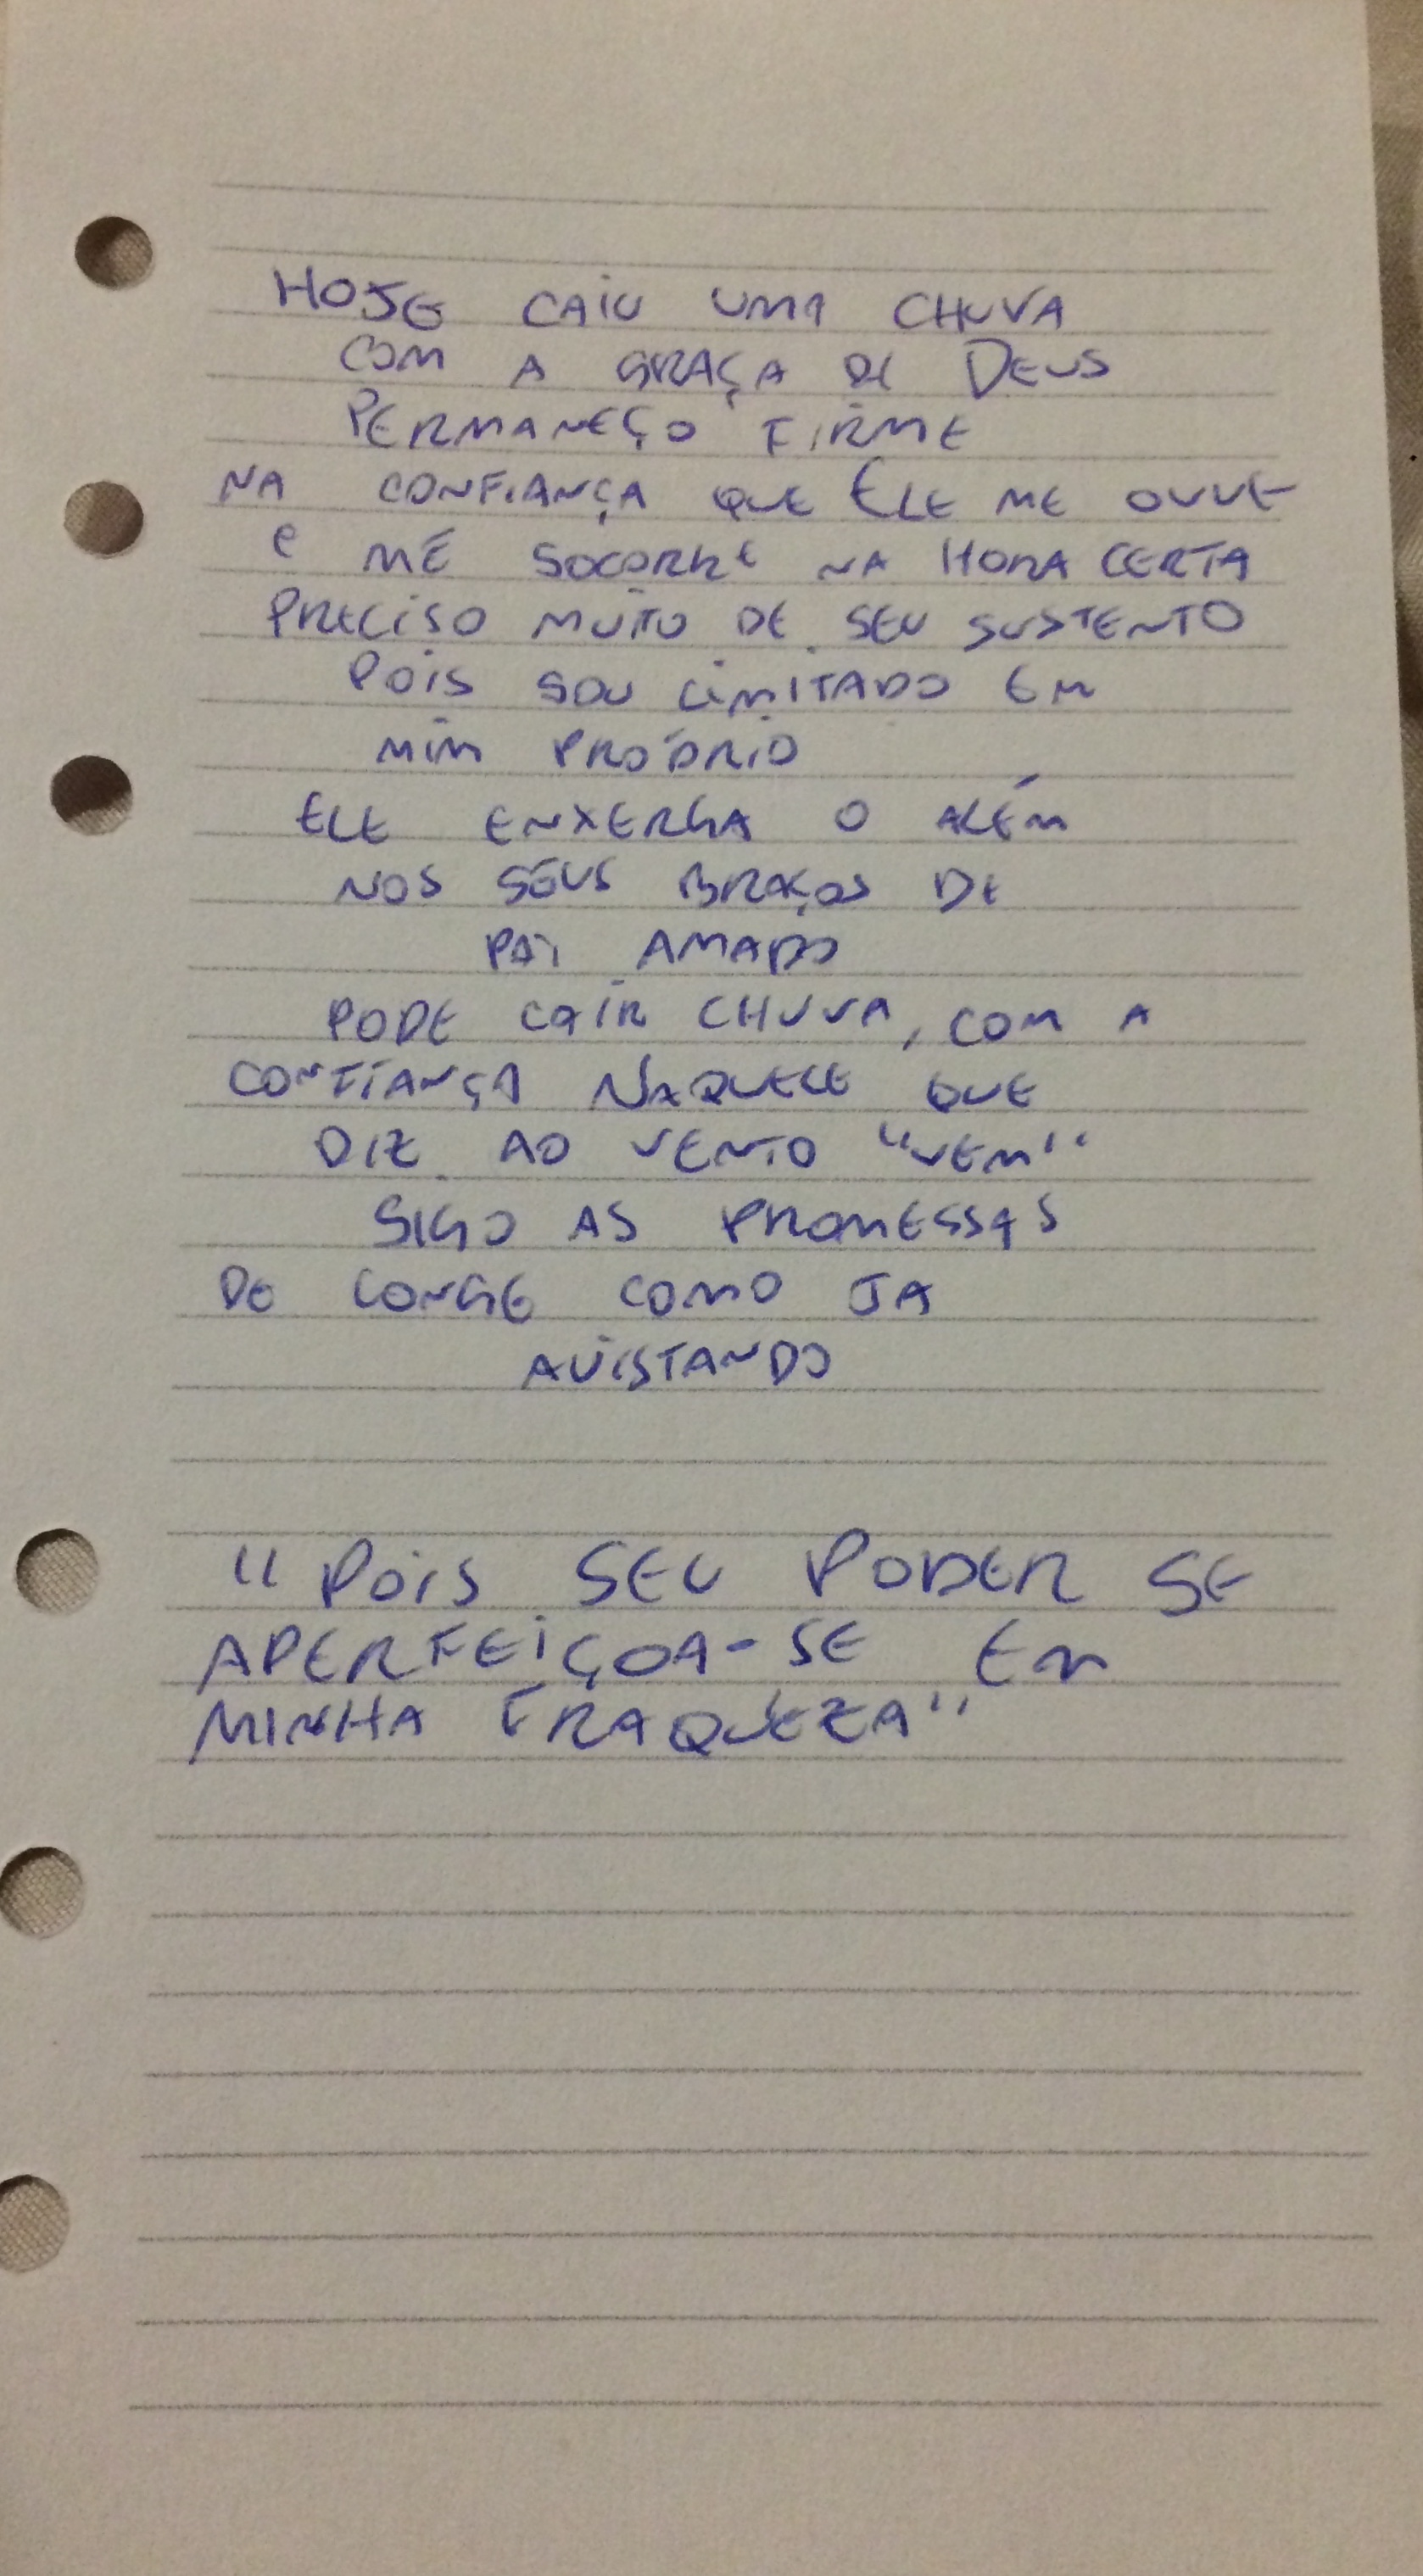 HOJE CAIU UMA CHUVA
COM A GRAÇA DE DEUS
PERMANEÇO FIRME
NA CONFIANÇA QUE ELE ME OUVE
E ME SOCORRE NA HORA CERTA
PRECISO MUITO DE SEU SUSTENTO
POIS SOU LIMITADO EM
MIM PRÓPRIO
ELE ENXERGA O ALÉM
NOS SEUS BRAÇOS DE
PAI AMADO
PODE CAIR CHUVA, COM A
CONFIANÇA NAQUELE QUE
DIZ AO VENTO "VEM"
SIGO AS PROMESSAS
DE LONGE COMO JA
AVISTANDO
"POIS SEU PODER SE
APERFEIÇOA-SE EM
MINHA FRAQUEZA"